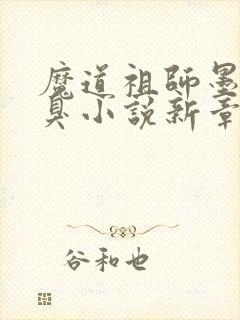 魔道祖師墨
臭小說新章
谷和也